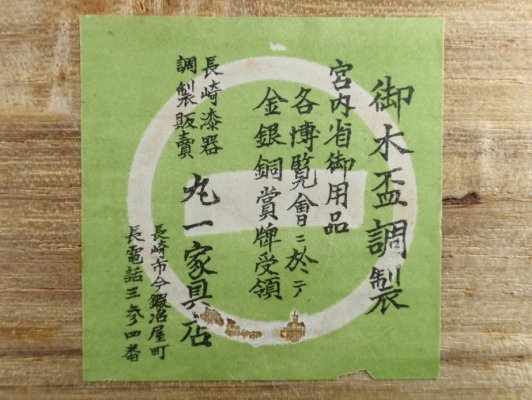 御木盃調製
宮内省御用品
各博覧會ニ於テ
金銀銅賞牌受領
長崎漆器
調製販賣
丸一家具店
長崎市今鍛冶屋町
長電話三参四番